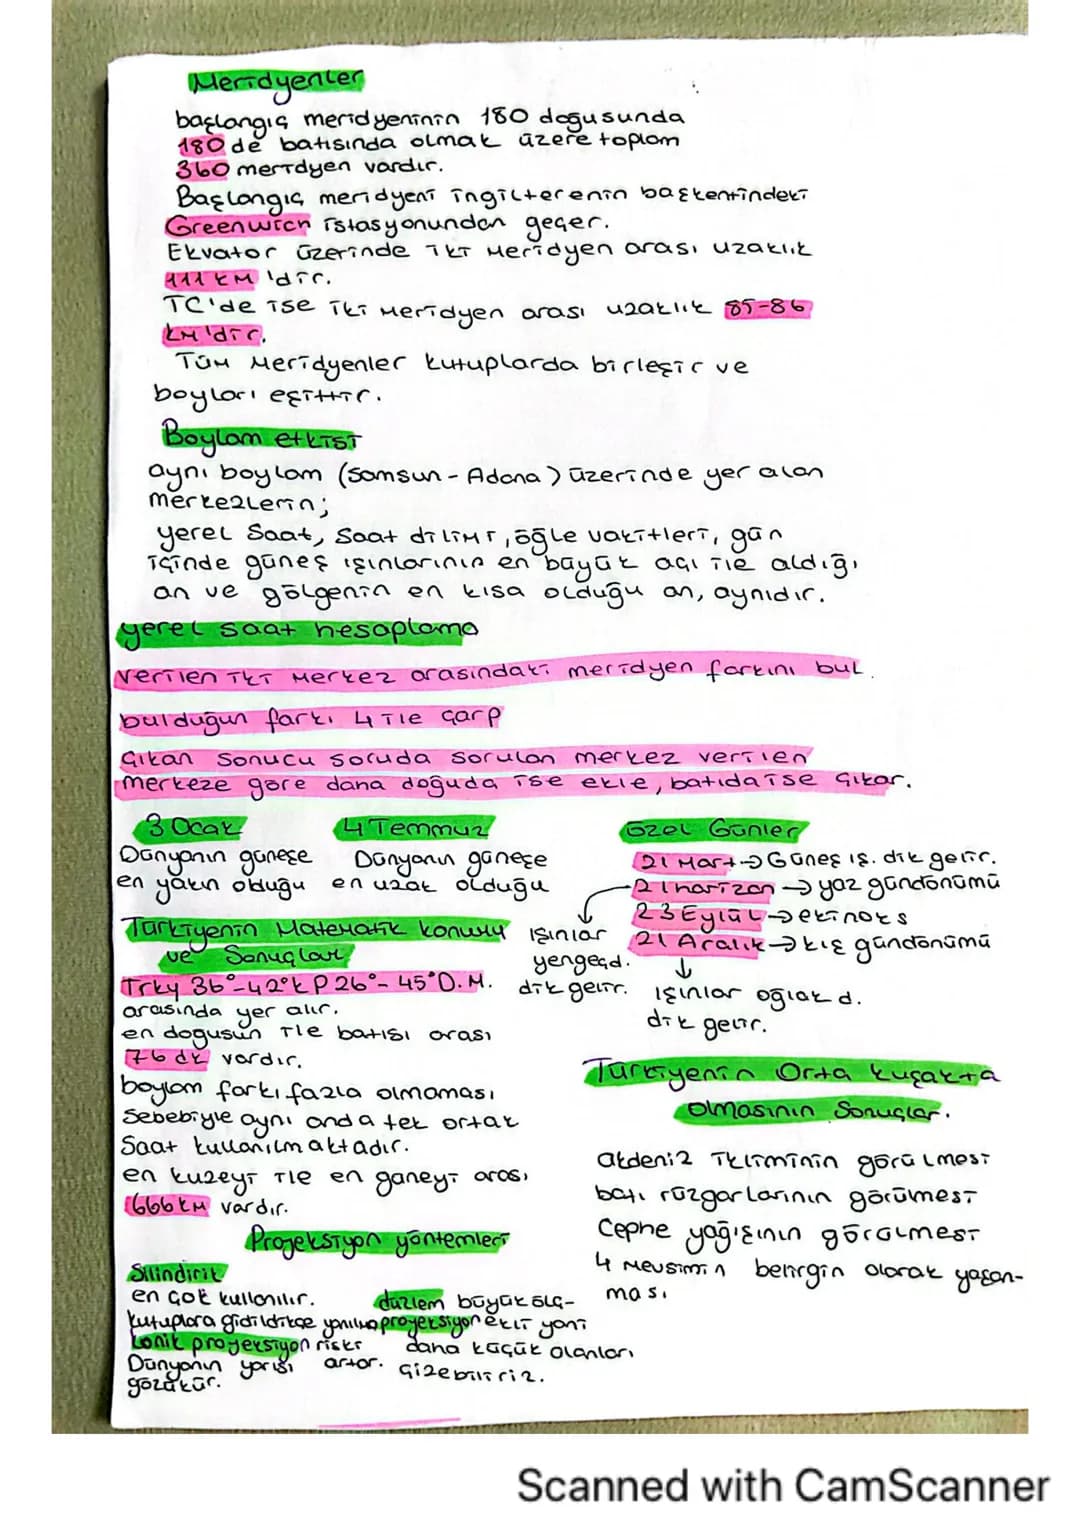 Meridyenler
başlangıç meridyeninin 180 doğusunda
180 de batısında olmak üzere toplam
360 meridyen vardır.
Başlangıç meridyeni ingilterenin başkentindeki
Greenwich istasyonundan geçer.
Ekvator üzerinde iki meridyen arası uzaklık
111 km 'dir.
TC'de ise iki meridyen arası uzaklık 85-86
km'dir.
Tüm meridyenler kutuplarda birleşir ve
boyları eşittir.
Boylam etkisi
aynı boylam (Samsun - Adana) üzerinde yer alan
merkezlerin;
yerel saat, saat dilimi, öğle vakitleri, gün
içinde güneş ışınlarının en büyük açı ile aldığı
an ve gölgenin en kısa olduğu an, aynıdır.
yerel saat hesaplama
verilen iki merkez arasındaki meridyen farkını bul.
bulduğun farkı 4 ile çarp
Çıkan sonucu soruda sorulan merkez verilen
merkeze göre daha doğuda ise ekle, batıda ise çıkar.
3 Ocak
Dünyanın güneşe
en yakın olduğu
4 Temmuz
Dünyanın güneşe
en uzak olduğu
özel Günler
21 Mart → Güneş ış. dik gelir.
21 haziran → yaz gündönümü
23 Eylül → ekinoks
21 Aralık → kış gündönümü
ışınlar
yengeçd.
dik gelir.
ışınlar oğlak d.
dik gelir.
Türkiyenin Matematik konumu
ve Sonuçları
Trky 36°-42°K P 26°- 45°D.M.
arasında yer alır.
en doğusun ile batısı arası
76 dk vardır.
boylam farkı fazla olmaması
sebebiyle aynı anda tek ortak
saat kullanılmaktadır.
en kuzeyi ile en güneyi arası
666 km vardır.
Türkiyenin Orta kuşakta
olmasının Sonuçlar.
akdeniz ikliminin görülmesi
batı rüzgarlarının görülmesi
Cephe yağışının görülmesi
4 mevsimin belirgin olarak yaşan-
ması
Projeksiyon yöntemleri
Silindirik
en çok kullanılır.
kutuplara gidildikçe yanılma
riski
artar.
konik projeksiyon
Dünyanın yarısı
gözükür.
düzlem büyük ölç-
projeksiyon ekli yani
daha küçük olanları
çizebiliriz.
Scanned with CamScanner